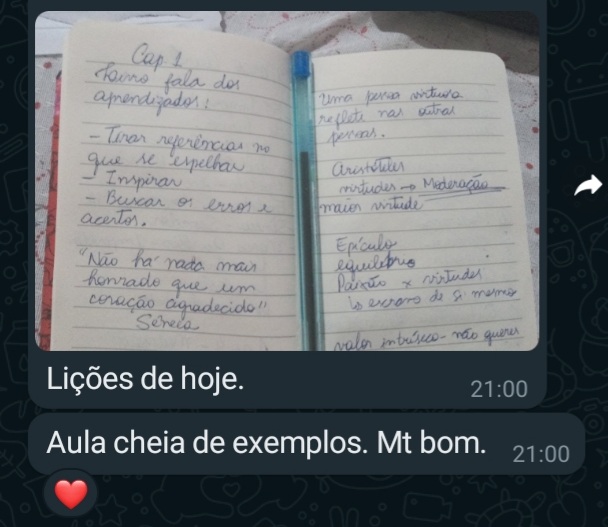 Cap 1
Livro fala dos
aprendizados:
- Tirar referências no
que se espelhar
- Inspirar
- Buscar os erros e
acertos.
"Não há nada mais
honrado que um
coração agradecido"
Sêneca
Uma pessoa virtuosa
reflete nas outras
pessoas.
Aristóteles
virtudes → Moderação
maior virtude
Epículo
equilíbrio
Paixão x virtudes
↳ escravo de si mesmo
valor intrínseco - não querer
Lições de hoje.
21:00
Aula cheia de exemplos. Mt bom.
21:00